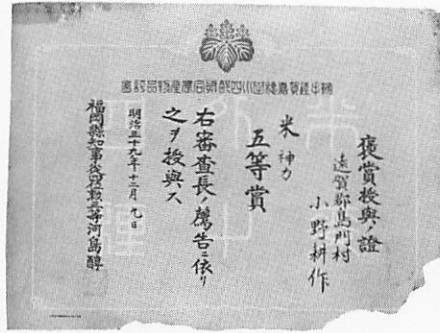 褒賞授與ノ證
遠賀郡島門村
小野耕作
米 神力
五等賞
右審査長ノ薦告ニ依リ
之ヲ授與ス
明治三十九年十二月九日
福岡縣知事従四位勲三等河島醇